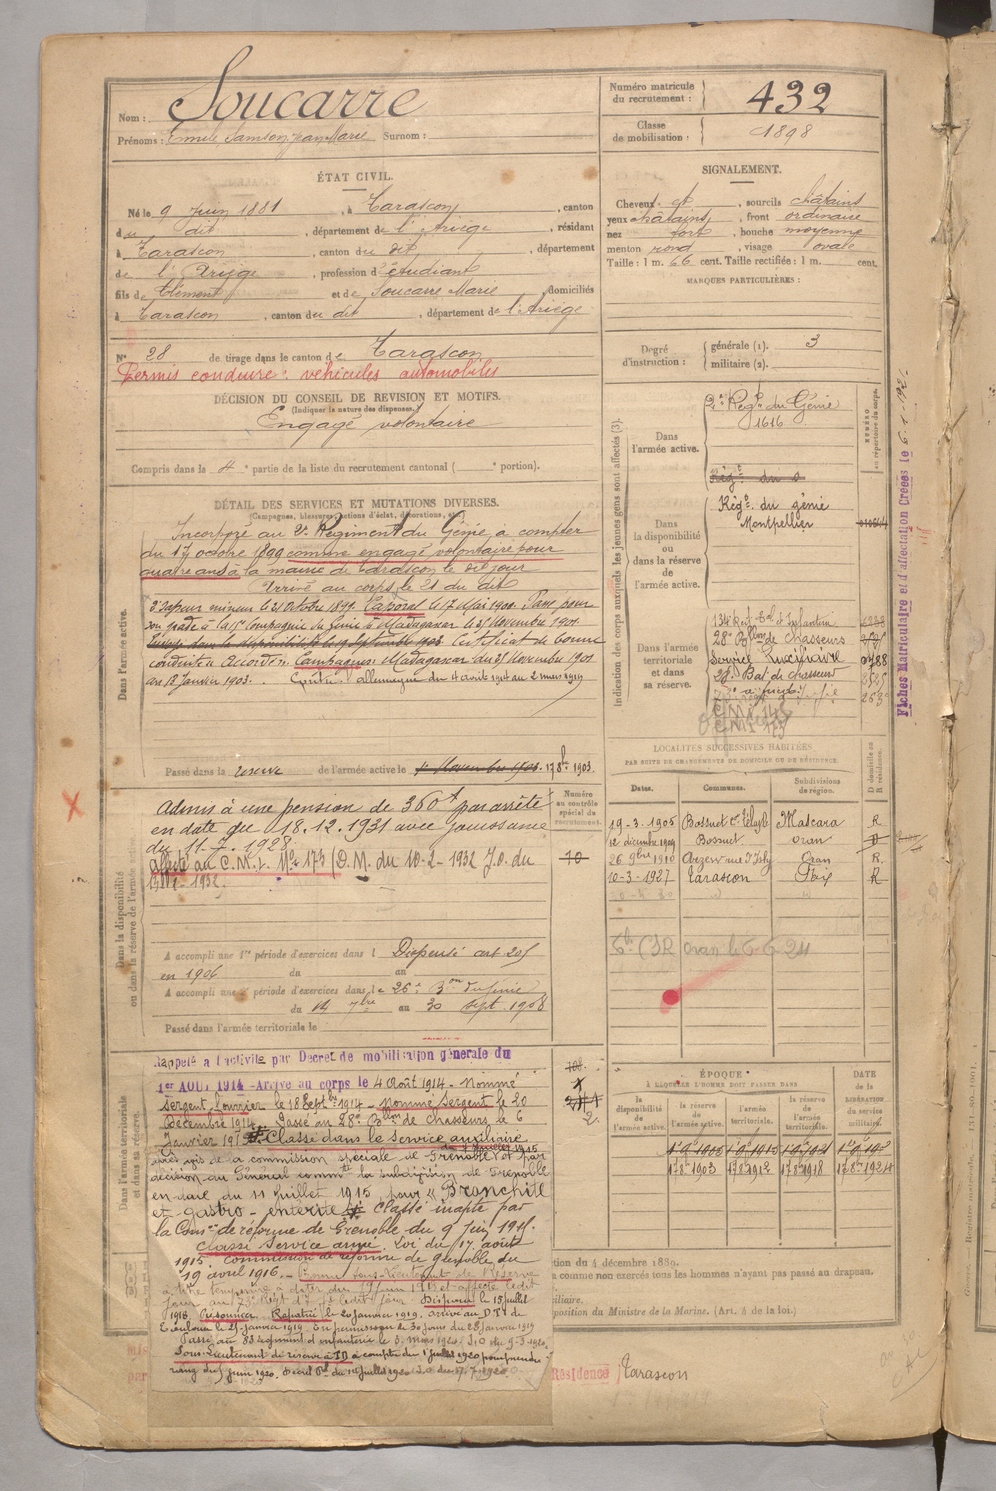 Nom : Soucarre
Prénoms : Emile Samson Jean Marie Surnom :
Numéro matricule du recrutement : 432
Classe de mobilisation : 1898
ÉTAT CIVIL.
Né le 9 Juin 1881, à Tarascon, canton
du dit, département de l'Ariège, résidant
à Tarascon, canton du dit, département
de l'Ariège, profession d'étudiant
fils de Clément et de Soucarre Marie, domiciliés
à Tarascon, canton du dit, département de l'Ariège
N° 28 de tirage dans le canton de Tarascon
Permis conduire : véhicules automobiles
DÉCISION DU CONSEIL DE REVISION ET MOTIFS.
(Indiquer la nature des dispenses.)
Engagé volontaire
Compris dans la 4e partie de la liste du recrutement cantonal ( e portion).
SIGNALEMENT.
Cheveux ch, sourcils châtains
yeux châtains, front ordinaire
nez fort, bouche moyenne
menton rond, visage ovale
Taille : 1 m. 66 cent. Taille rectifiée : 1 m. cent.
MARQUES PARTICULIÈRES :
Degré d'instruction : générale (1). 3
militaire (2).
DÉTAIL DES SERVICES ET MUTATIONS DIVERSES.
(Campagnes, blessures, actions d'éclat, décorations, etc.)
Dans l'armée active.
Incorporé au 2e Régiment du Génie à compter
du 17 octobre 1899 comme engagé volontaire pour
quatre ans à la mairie de Tarascon le dit jour
Arrivé au corps le 21 du dit
Sapeur mineur le 21 Octobre 1899. Caporal le 17 Mai 1900. Passé pour
son grade à la Compagnie du génie à Madagascar le 25 Novembre 1901
Certificat de bonne
conduite Accordé. Campagnes : Madagascar du 25 Novembre 1901
au 12 Janvier 1903. Contre l'allemagne du 4 août 1914 au 2 mars 1919
Passé dans la réserve de l'armée active le 1er Novembre 1903. 17 8bre 1903.
Dans la disponibilité ou dans la réserve de l'armée active
Admis à une pension de 360f par arrêté
en date du 18.12.1931 avec jouissance
du 11-7.1928.
affecté au C.M.I. N° 173 (D.M. du 10-2-1932 J.O. du
1932.
A accompli une 1re période d'exercices dans l Dispensé art 205
en 1906 du au
A accompli une 2e période d'exercices dans le 26e Bon du Génie
du 14 7bre au 30 Sept. 1908
Passé dans l'armée territoriale le
Numéro au contrôle spécial du recrutement.
10
Dans l'armée territoriale et dans sa réserve.
Rappelé à l'activité par Décret de mobilisation générale du
1er AOUT 1914 - Arrivé au corps le 4 Août 1914 - Nommé
Sergent fourrier le 18 Septbre 1914 - Nommé Sergent le 20
Décembre 1914. Passé au 28e Bllon de Chasseurs le 6
Janvier 1915. Classé dans le service auxiliaire
avis de la commission spéciale de Grenoble et par
décision du Général commt la subdivision de Grenoble
en date du 11 Juillet 1915 pour « Bronchite
et gastro-enterite » Classé inapte par
la Comon de réforme de Grenoble du 9 Juin 1915.
Classé Service armé. Loi du 17 août
1915. Commission de réforme de Grenoble du
19 avril 1916. Nommé Sous-Lieutenant de Réserve
Disparu le 15 juillet
1918. Prisonnier. Rapatrié le 20 Janvier 1919. Arrivé au DTI de
Toulouse le 25 Janvier 1919. En permission de 30 jours du 28 Janvier 1919
Passé au 83 régiment d'infanterie le 3 mars 1920. J.O du 9-3-1920.
Sous-Lieutenant de réserve à TD à compter du 1 juillet 1920 pour prendre
rang du juin 1920. Décret Pl. du 1er Juillet 1920 J.O. du 17.7.1920.
Indication des corps auxquels les jeunes gens sont affectés (3).
Dans l'armée active.
2e Régt du Génie
1616
NUMÉRO au répertoire du corps.
Dans la disponibilité ou dans la réserve de l'armée active.
Règt. du génie
Montpellier
Dans l'armée territoriale et dans sa réserve.
134e Régt Tal d'Infanterie
28e Bllon de Chasseurs
Service Auxiliaire
28e Bat de chasseurs
CMI 145
CMI 173
Fiches Matriculaire et d'affectation Créées le 6-1-192
LOCALITÉS SUCCESSIVES HABITÉES
PAR SUITE DE CHANGEMENTS DE DOMICILE OU DE RÉSIDENCE.
Dates. Communes. Subdivisions de région. D domicile ou R résidence.
19-3-1905 Bossuet Mascara R
12 décembre 1909 Bossuet Oran D
26 9bre 1910 Arzew rue d'Isly Oran R
10-3-1927 Tarascon Foix R
ÉPOQUE
À LAQUELLE L'HOMME DOIT PASSER DANS
la disponibilité de l'armée active.
la réserve de l'armée active.
l'armée territoriale.
la réserve de l'armée territoriale.
DATE de la LIBÉRATION du service militaire.
17 8bre 1903 17 8bre 1912 17 8bre 1918 17 8bre 1924
tion du 4 décembre 1889.
comme non exercés tous les hommes n'ayant pas passé au drapeau.
iliaire.
position du Ministre de la Marine. (Art. 4 de la loi.)
Résidence Tarascon